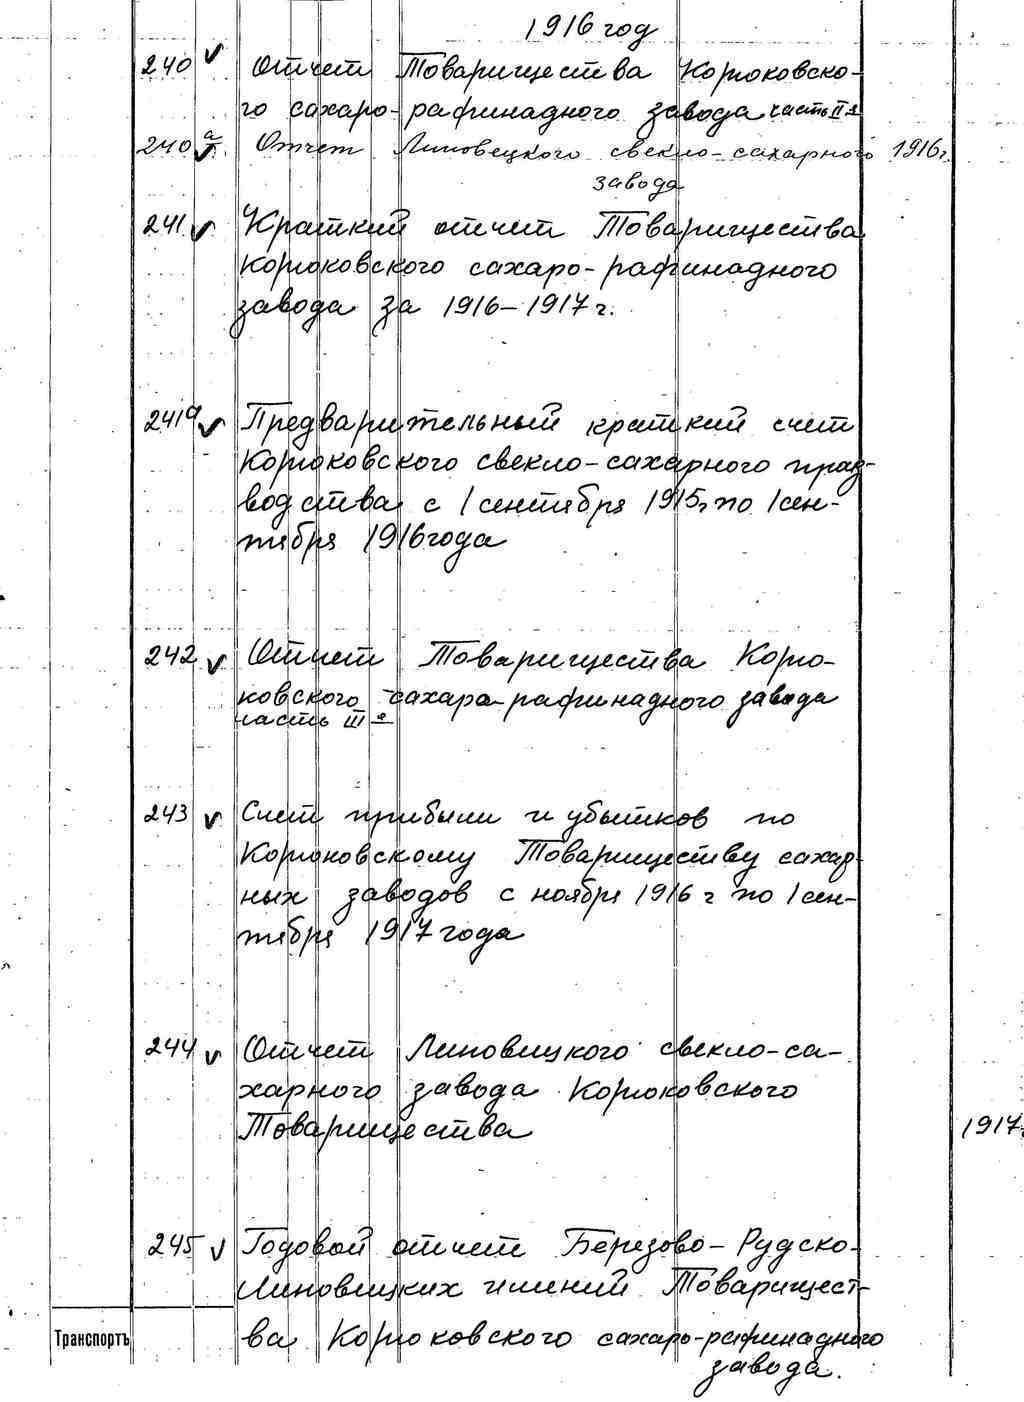 1916 год
240 Отчет Товарищества Корюковско-
го сахаро-рафинадного завода часть II я
240 а Отчет Линовецкого свекло-сахарного 1916 г.
завода
241 Краткий отчет Товарищества
Корюковского сахаро-рафинадного
завода за 1916-1917 г.
241а Предварительный краткий счет
Корюковского свекло-сахарного
водства с 1 сентября 1915 г по 1 сен-
тября 1916 года
242 Отчет Товарищества Корю-
ковского сахаро-рафинадного завода
часть III я
243 Счет прибыли и убытков по
Корюковскому Товариществу сахар-
ных заводов с ноября 1916 г по 1 сен-
тября 1917 года
244 Отчет Линовицкого свекло-са-
харного завода Корюковского
Товарищества 1917
245 Годовой отчет Березово-Рудско-
Линовицких имений Товарищест-
Транспортъ ва Корюковского сахаро-рафинадного
завода.